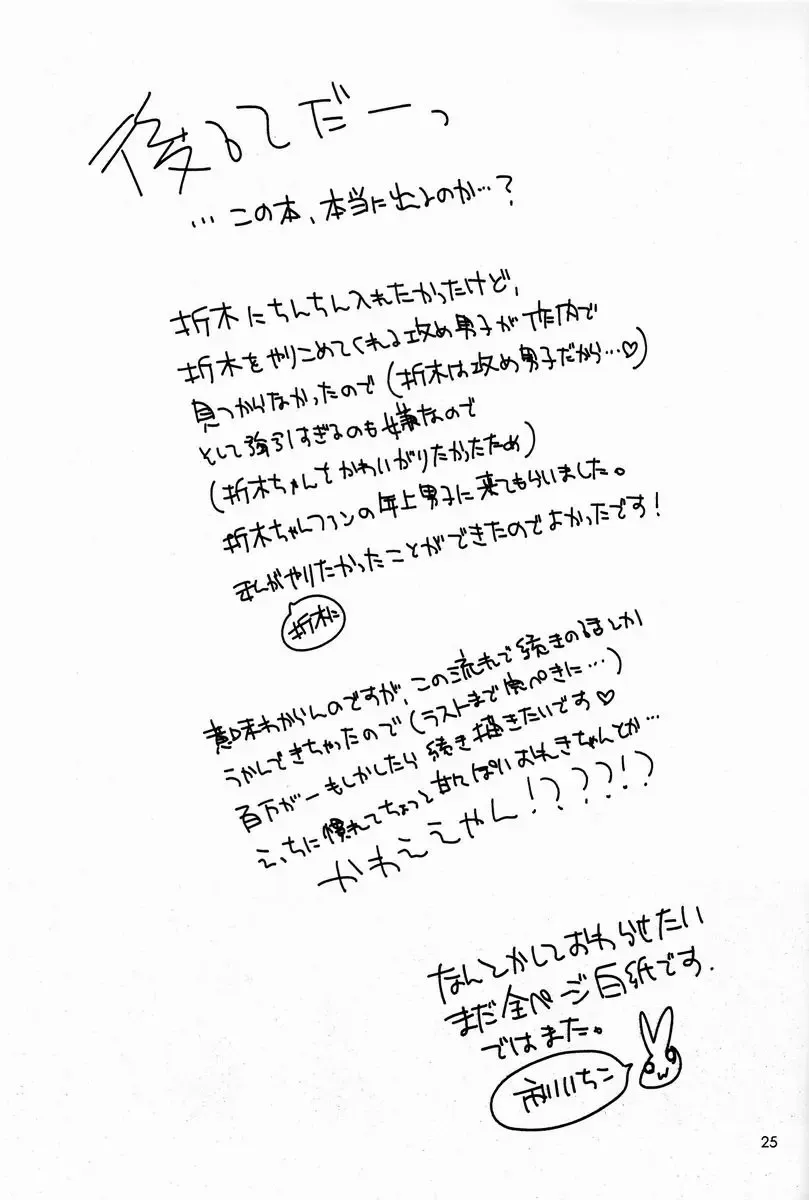 後るてだーっ
…この本、本当に出るのか…？
折木にちんちん入れたかったけど、
折木をやりこめてくれる攻め男子が作内で
見つからなかったので(折木は攻め男子だから…♡)
そして強引すぎるのも嫌なので
(折木ちゃんをかわいがりたかったため)
折木ちゃんファンの年上男子に来てもらいました。
私がやりたかったことができたのでよかったです!
折木に
意味わからんのですが、この流れで続きのるまとか
うかんできちゃったので(ラストまで完ぺきに…)
百万が一もしかしたら続き描きたいです♡
えっちに慣れてちょっと甘えっぽいおれきちゃんとか…
かわええやん!????!?
なんとかしておわらせたい
まだ全ページ白紙です.
ではまた。
いちこ
25